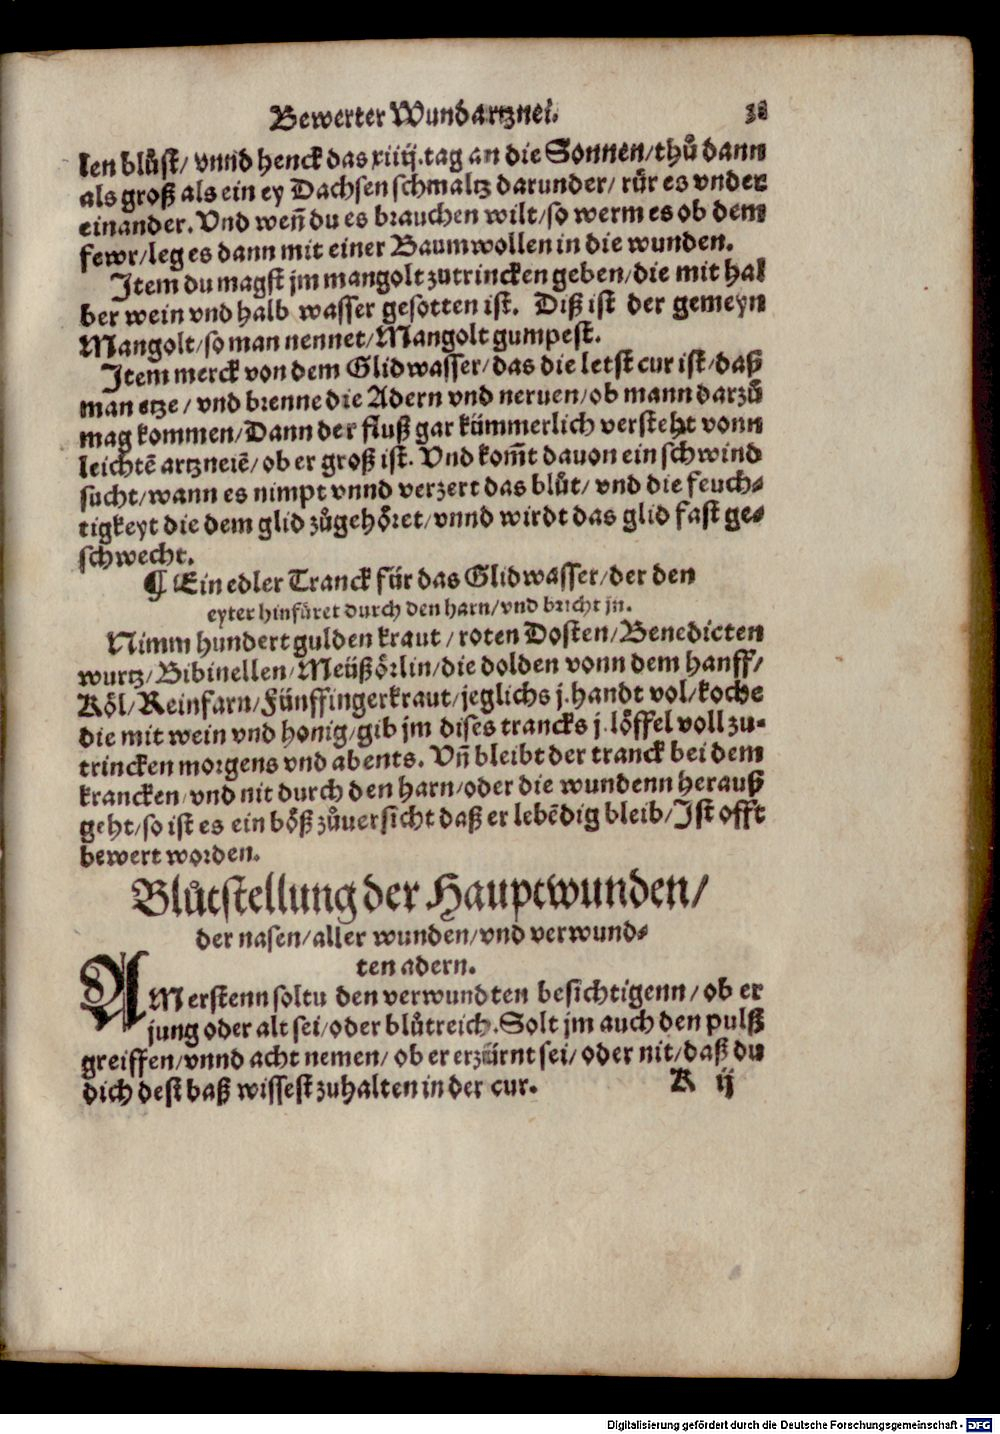 Bewerter Wundartznei. 38
len blůst/ vnnd henck das xiiij.tag an die Sonnen/thů dann
als groß als ein ey Dachsenschmaltz darunder/ rür es vnder
einander. Vnd weñ du es brauchen wilt/so werm es ob dem
fewr/leg es dann mit einer Baumwollen in die wunden.
Item du magst jm mangolt zutrincken geben/die mit hal
ber wein vnd halb wasser gesotten ist. Diß ist der gemeyn
Mangolt/so man nennet/Mangolt gumpest.
Item merck von dem Glidwasser/das die letst cur ist/daß
man etze/ vnd brenne die Adern vnd neruen/ob mann darzů
mag kommen/Dann der fluß gar kümmerlich versteht vonn
leichtẽ artzneiẽ/ob er groß ist. Vnd kom̃t dauon ein schwind
sucht/wann es nimpt vnnd verzert das blůt/ vnd die feuch⸗
tigkeyt die dem glid zůgehöret/vnnd wirdt das glid fast ge⸗
schwecht.
¶ Ein edler Tranck für das Glidwasser/der den
eyter hinfüret durch den harn/vnd bricht jn.
Nimm hundert gulden kraut/roten Dosten/Benedicten
wurtz/Bibinellen/Meüßörlin/die dolden vonn dem hanff/
Köl/Reinfarn/Fünffingerkraut/jeglichs j.handt vol/koche
die mit wein vnd honig/gib jm dises trancks j.löffel voll zu⸗
trincken morgens vnd abents. Vñ bleibt der tranck bei dem
krancken/vnd nit durch den harn/oder die wundenn herauß
geht/so ist es ein böß zůuersicht daß er lebẽdig bleib/Ist offt
bewert worden.
Blůtstellung der Hauptwunden/
der nasen/aller wunden/vnd verwund⸗
ten adern.
AM erstenn soltu den verwundten besichtigenn/ob er
jung oder alt sei/oder blůtreich. Solt jm auch den pulß
greiffen/vnnd acht nemen/ ob er erzürnt sei/ oder nit/daß du
dich dest baß wissest zuhalten in der cur.
K ij
Digitalisierung gefördert durch die Deutsche Forschungsgemeinschaft - DFG